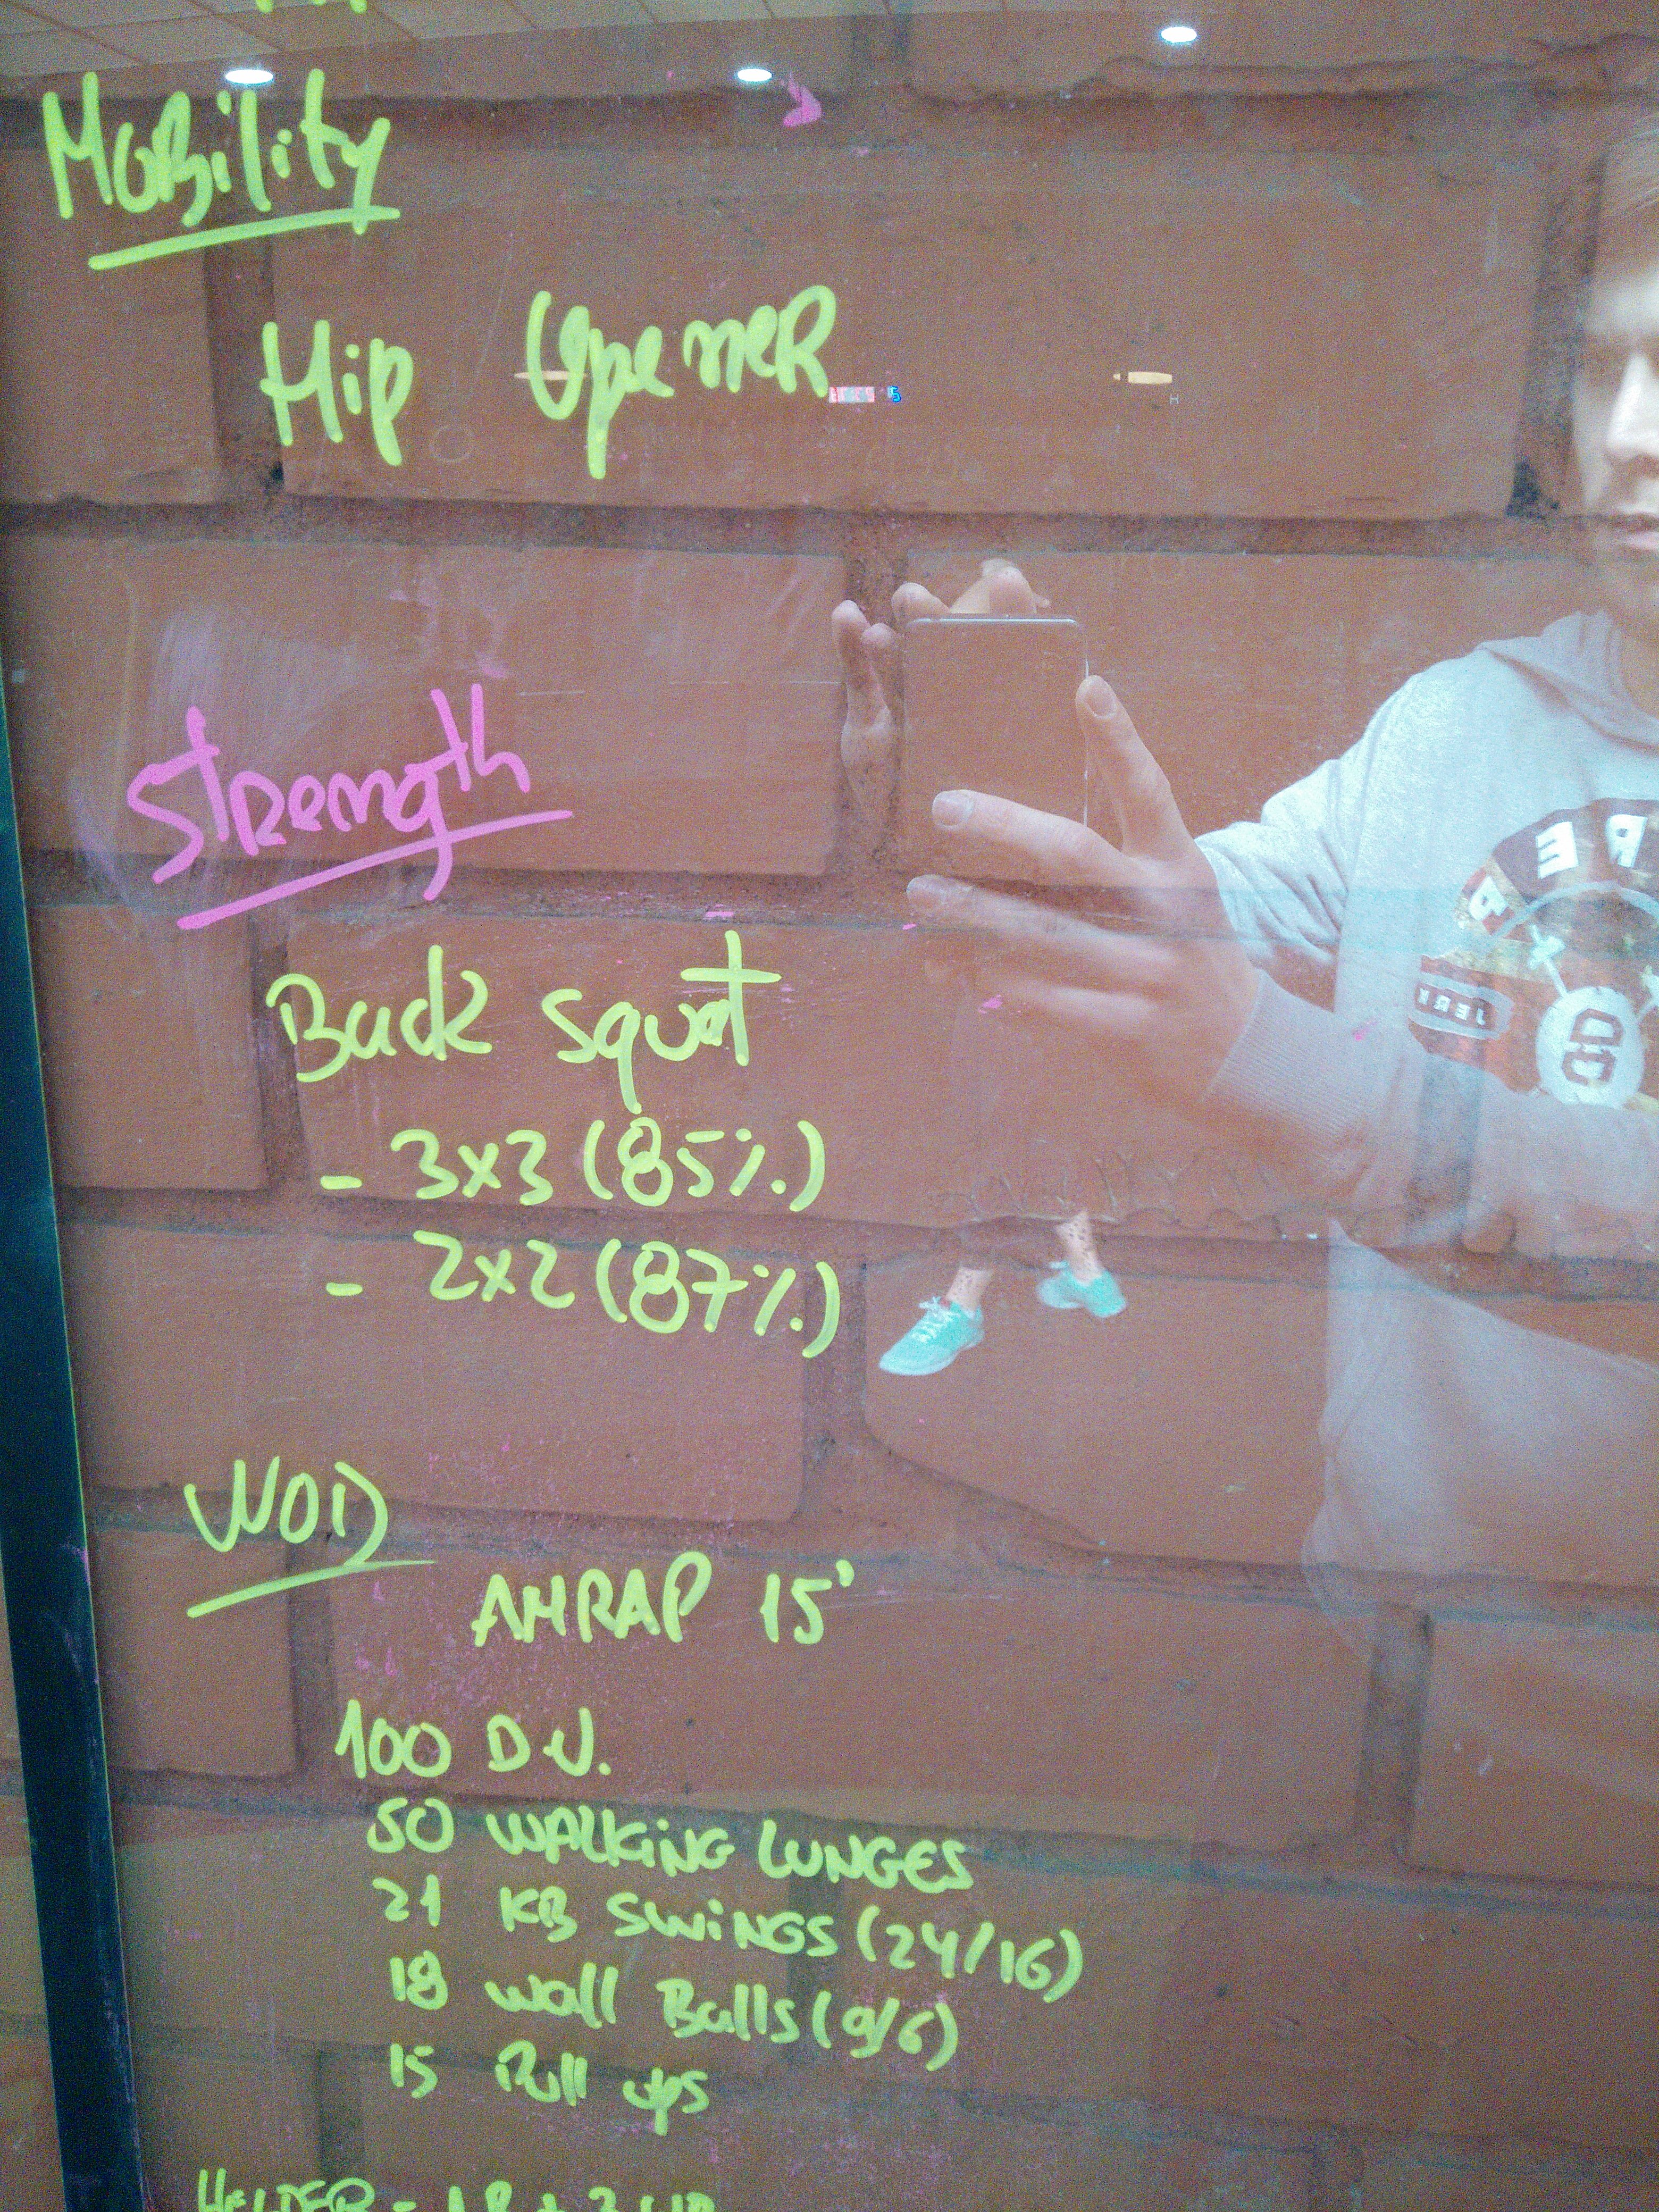 Mobility
Hip Opener
Strength
Back squat
- 3x3 (85%)
- 2x2 (87%)
WOD
AMRAP 15'
100 D.U.
50 WALKING LUNGES
21 KB SWINGS (24/16)
18 Wall Balls (9/6)
15 Pull ups
HELDER -